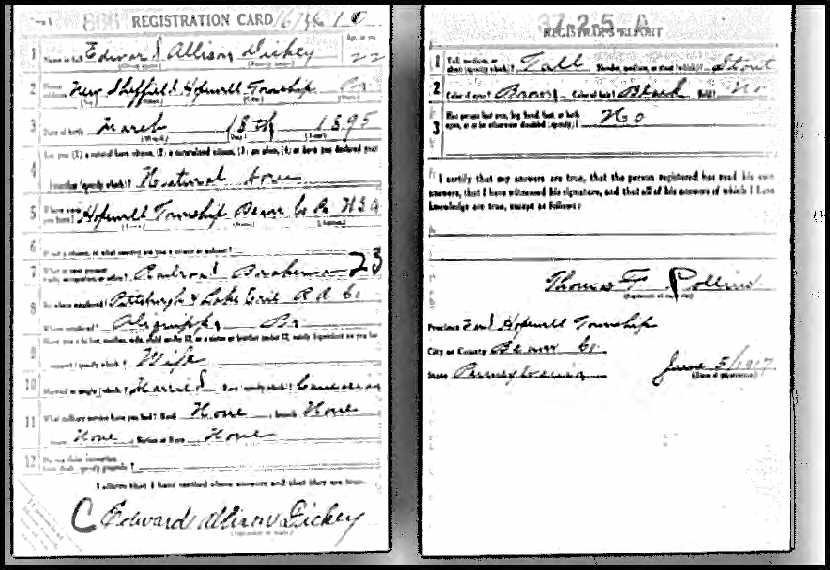 REGISTRATION CARD
1 Name in full Edward Allison Dickey 22
2 Home address New Sheffield Hopewell Township Pa
3 Date of birth March 18th 1895
Are you (1) a natural born citizen, (2) a naturalized citizen, (3) an alien, (4) or have you declared your
4 intention (specify which)? Natural born
5 Where were you born? Hopewell Township Beaver Co Pa USA
6 If not a citizen, of what country are you a citizen or subject?
7 What is your present trade, occupation, or office? Railroad Brakeman 23
8 By whom employed? Pittsburgh & Lake Erie R.R. Co.
Where employed? Aliquippa Pa
9 Wife
10 Married or single (which)? Married Race (specify which)? Caucasian
11 What military service have you had? Rank None ; branch None
years None ; Nation or State None
12 Do you claim exemption from draft (specify grounds)?
I affirm that I have verified above answers and that they are true.
C Edward Allison Dickey
37-2-5 A
REGISTRAR'S REPORT
1 Tall, medium, or short (specify which)? Tall Slender, medium, or stout (which)? Stout
2 Color of eyes? Brown Color of hair? Black Bald? No
3 Has person lost arm, leg, hand, foot, or both eyes, or is he otherwise disabled (specify)? No
I certify that my answers are true, that the person registered has read his own
answers, that I have witnessed his signature, and that all of his answers of which I have
knowledge are true, except as follows:
Thomas F
Precinct Hopewell Township
City or County Beaver Co.
State Pennsylvania June 5/1917